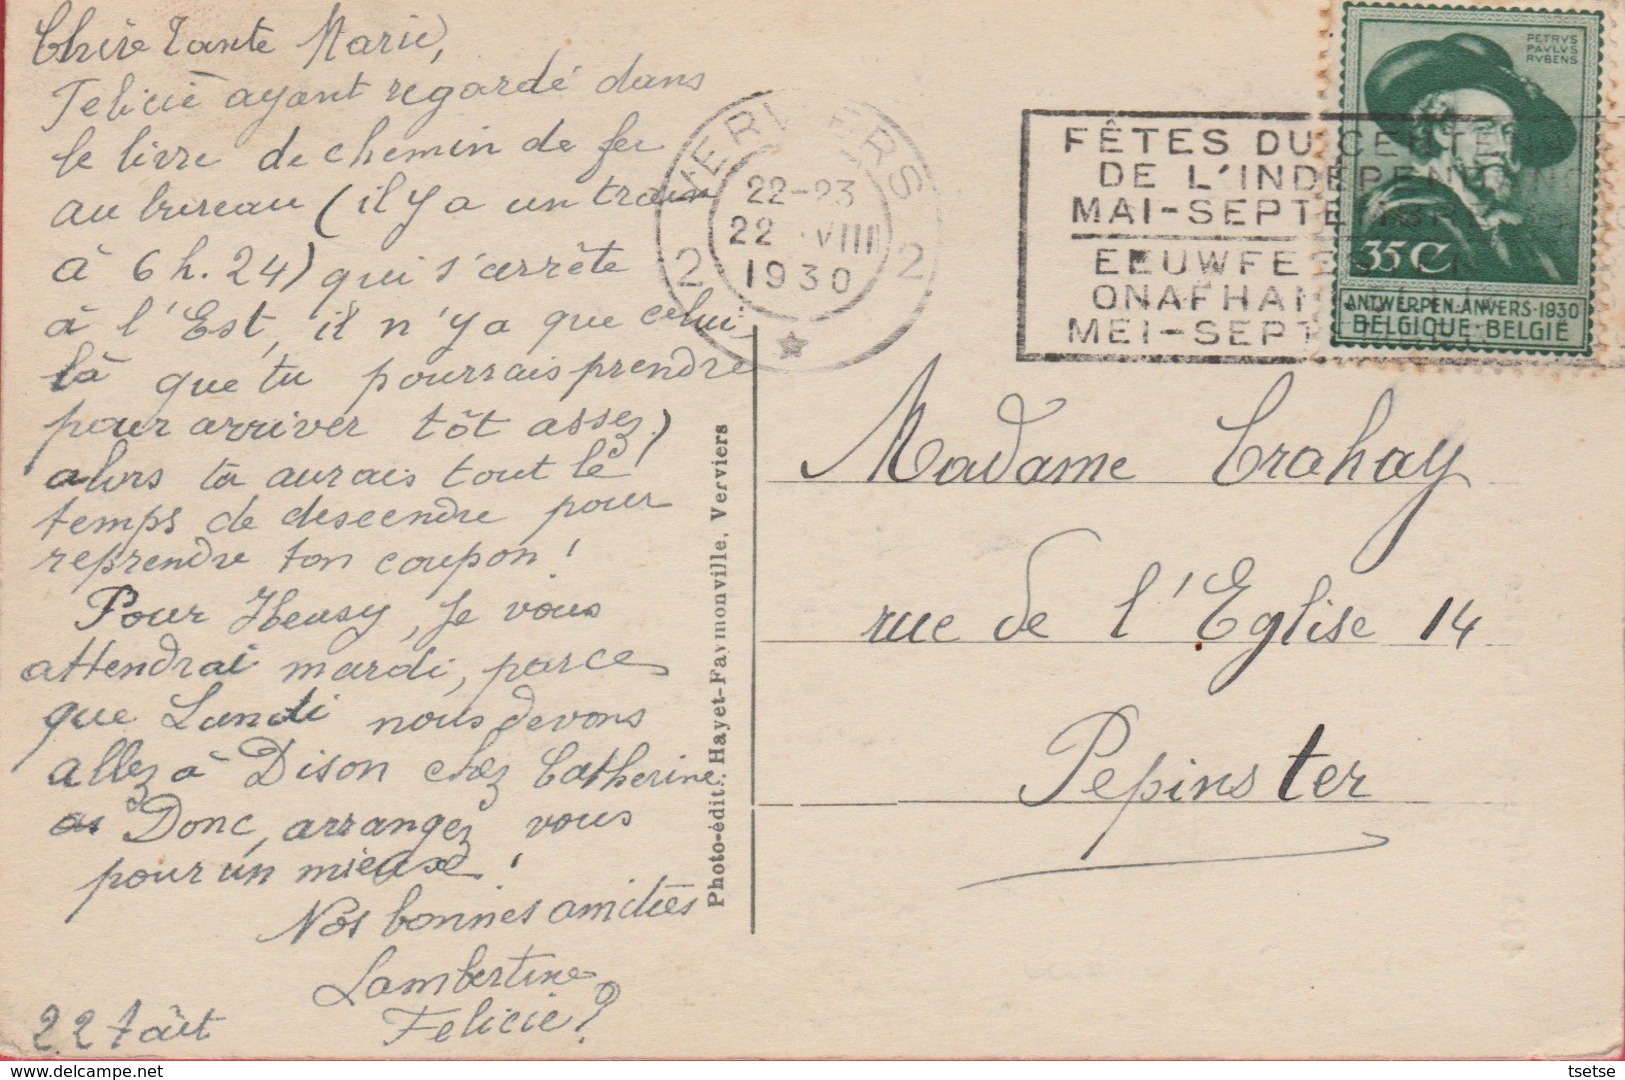 Chère Tante Marie,
Felicie ayant regardé dans
le livre de chemin de fer
au bureau (il y a un train
à 6 h. 24) qui s'arrête
à l'Est, il n'y a que celui
là que tu pourrais prendre
pour arriver tôt assez)
alors tu aurais tout le
temps de descendre pour
reprendre ton coupon!
Pour Heusy, je vous
attendrai mardi, parce
que Lundi nous devons
allez à Dison chez Catherine
Donc, arrangez vous
pour un mieux!
Nos bonnes amitiés
Lambertine
Felicie?
22 Août
Photo-édit.: Hayet-Faymonville, Verviers
VERVIERS
22-23
22 VIII
1930
2 2
FÊTES DU CENTE
DE L'INDÉPEND
MAI-SEPTE
EEUWFEES
ONAFHAN
MEI-SEPT
PETRVS
PAVLVS
RVBENS
35 C
ANTWERPEN·ANVERS·1930
BELGIQUE·BELGIË
Madame Crahay
rue de l'Eglise 14
Pepinster
tsetse